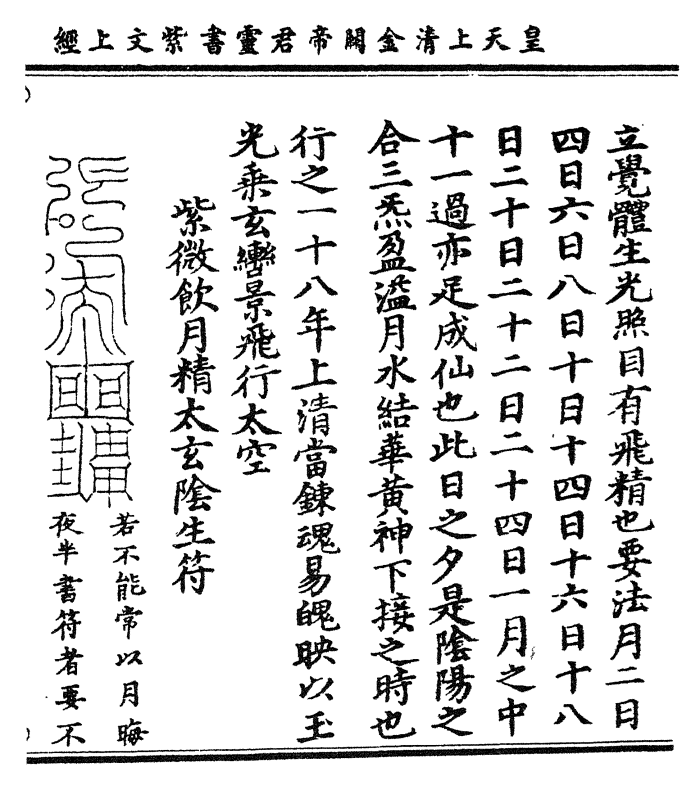 皇天上清金闕帝君靈書紫文上經
立覺體生光照目有飛精也要法月二日
四日六日八日十日十四日十六日十八
日二十日二十二日二十四日一月之中
十一過亦足成仙也此日之夕是陰陽之
合三炁盈溢月水結華黃神下接之時也
行之一十八年上清當鍊魂易魄映以玉
光乗玄轡景飛行太空
紫微飲月精太玄陰生符
若不能常以月晦
夜半書符者要不